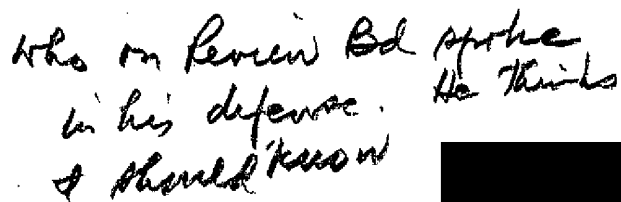 who on Review Bd spoke
in his defense. He thinks
I should know